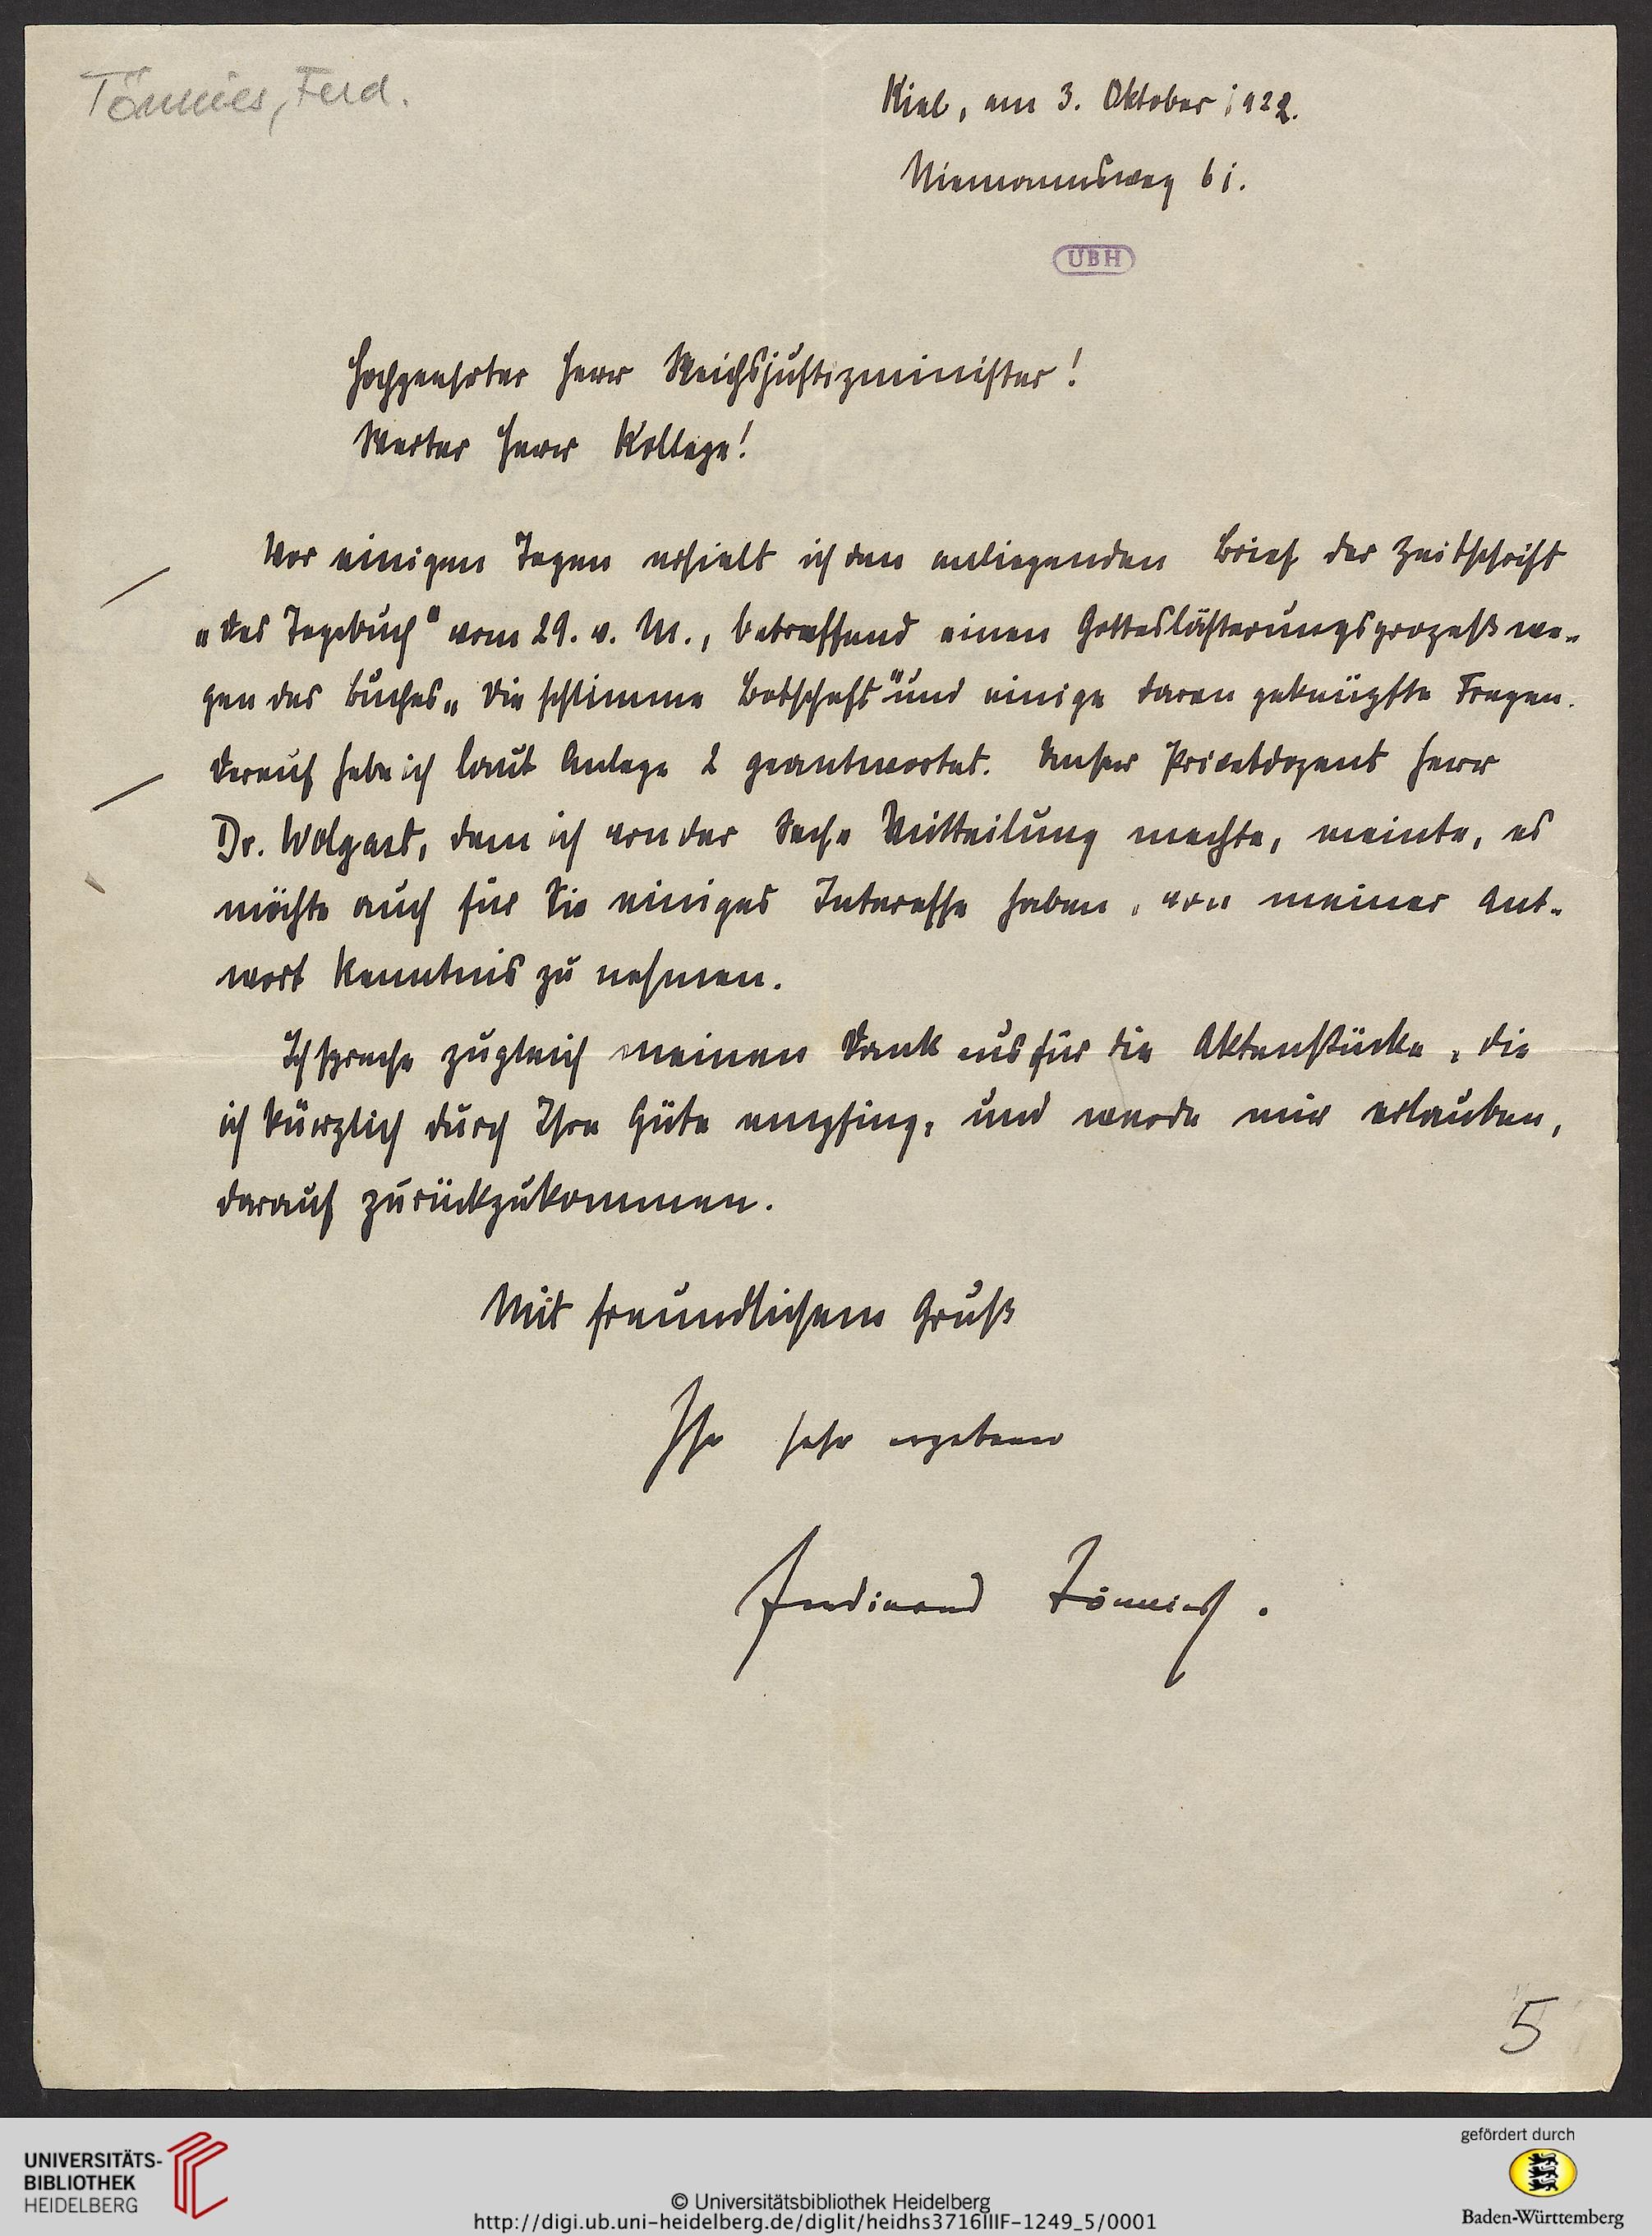 Tönnies, Ferd.
Kiel, am 3. Oktober 1922.
Niemannsweg 61.
UBH
Hochgeehrter Herr Reichsjustizminister!
Werter Herr Kollege!
Vor einigen Tagen erhielt ich den anliegenden Brief der Zeitschrift
„Das Tagebuch" vom 29. v. M., betreffend einen Gotteslästerungsprozeß we-
gen des Buches „Die schlimme Botschaft" und einige daran geknüpfte Fragen.
Darauf habe ich laut Anlage 2 geantwortet. Unser Privatdozent Herr
Dr. Wolgast, dem ich von der Sache Mitteilung machte, meinte, es
möchte auch für Sie einiges Interesse haben, von meiner Ant-
wort Kenntnis zu nehmen.
Ich spreche zugleich meinen Dank aus für die Aktenstücke, die
ich kürzlich durch Ihre Güte empfing, und werde mir erlauben,
darauf zurückzukommen.
Mit freundlichem Gruß
Ihr sehr ergebener
Ferdinand Tönnies.
5
UNIVERSITÄTS-
BIBLIOTHEK
HEIDELBERG
© Universitätsbibliothek Heidelberg
http://digi.ub.uni-heidelberg.de/diglit/heidhs3716IIIF-1249_5/0001
gefördert durch
Baden-Württemberg